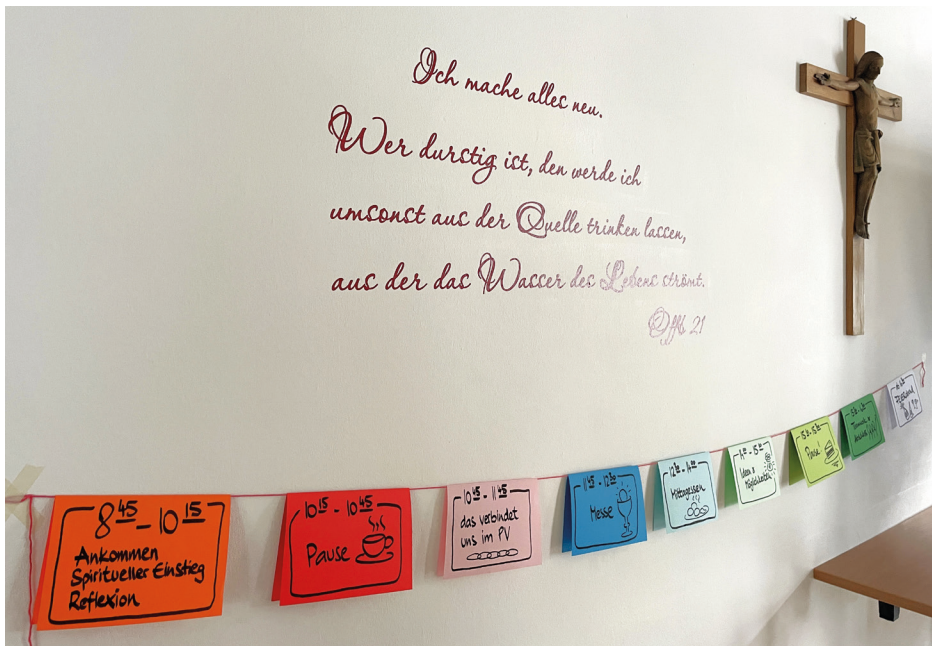 Ich mache alles neu.
Wer durstig ist, den werde ich
umsonst aus der Quelle trinken lassen,
aus der das Wasser des Lebens strömt.
Offb. 21
8 45 - 10 15
Ankommen
Spiritueller Einstieg
Reflexion
10 15 - 10 45
Pause
10 45 - 11 45
das verbindet
uns im PV
11 45 - 12 30
Messe
12 30 - 14 00
Mittagessen
Ideen &
Möglichkeiten
Pause!